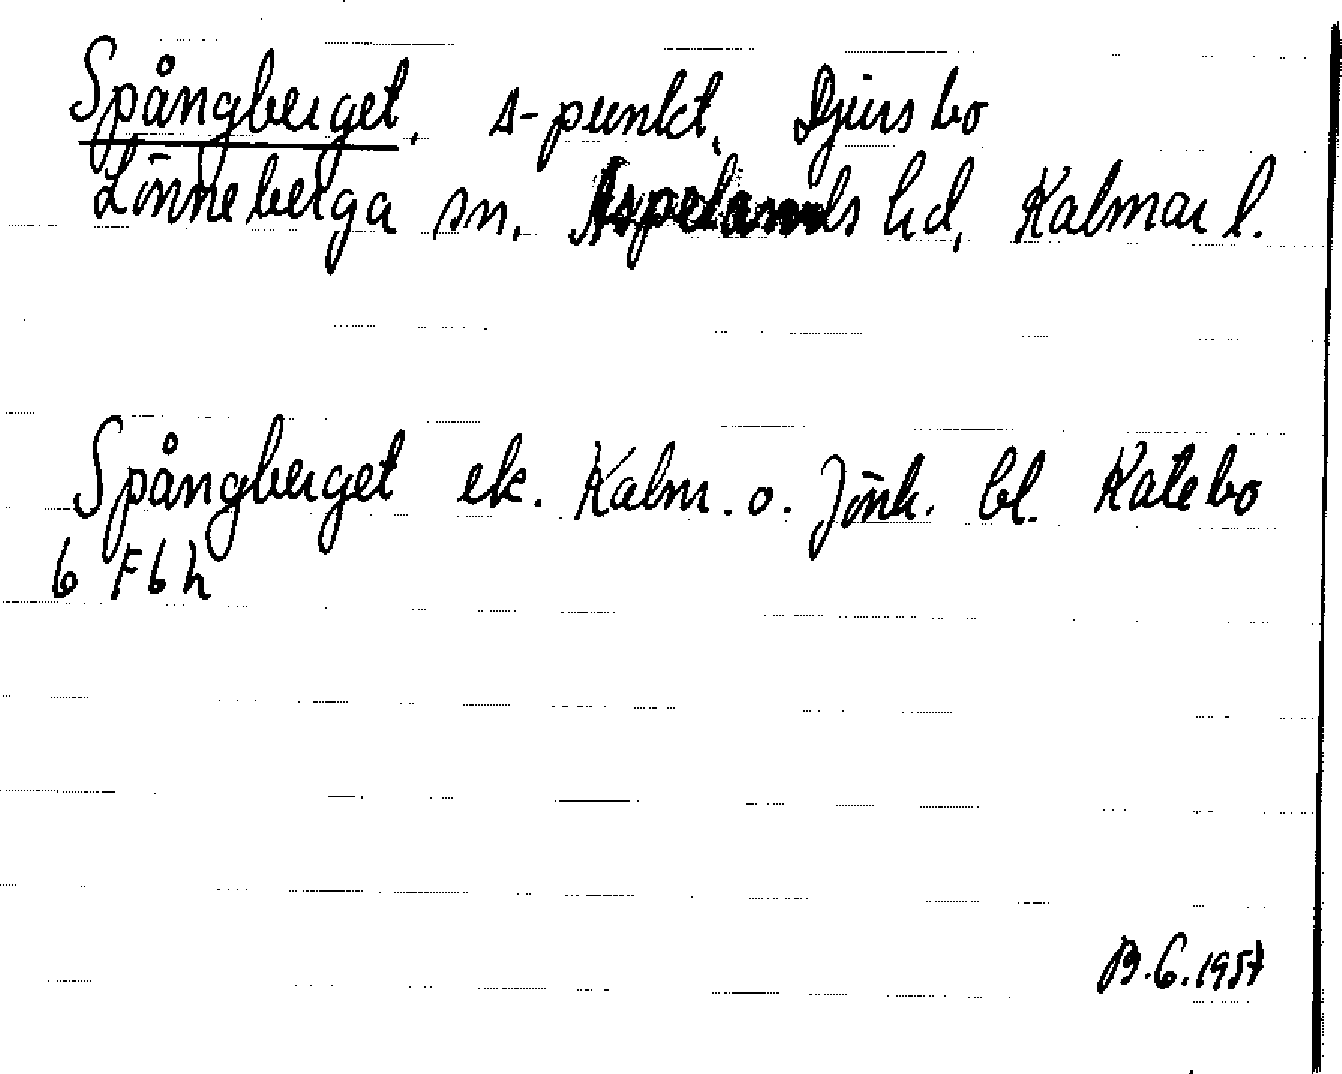 Spångberget. Δ-punkt, Djursbo
Lönneberga sn. Aspelands hd, Kalmar l.
Spångberget ek. Kalm. o. Jönk. bl. Katebo
6 F6h
B.G. 1957